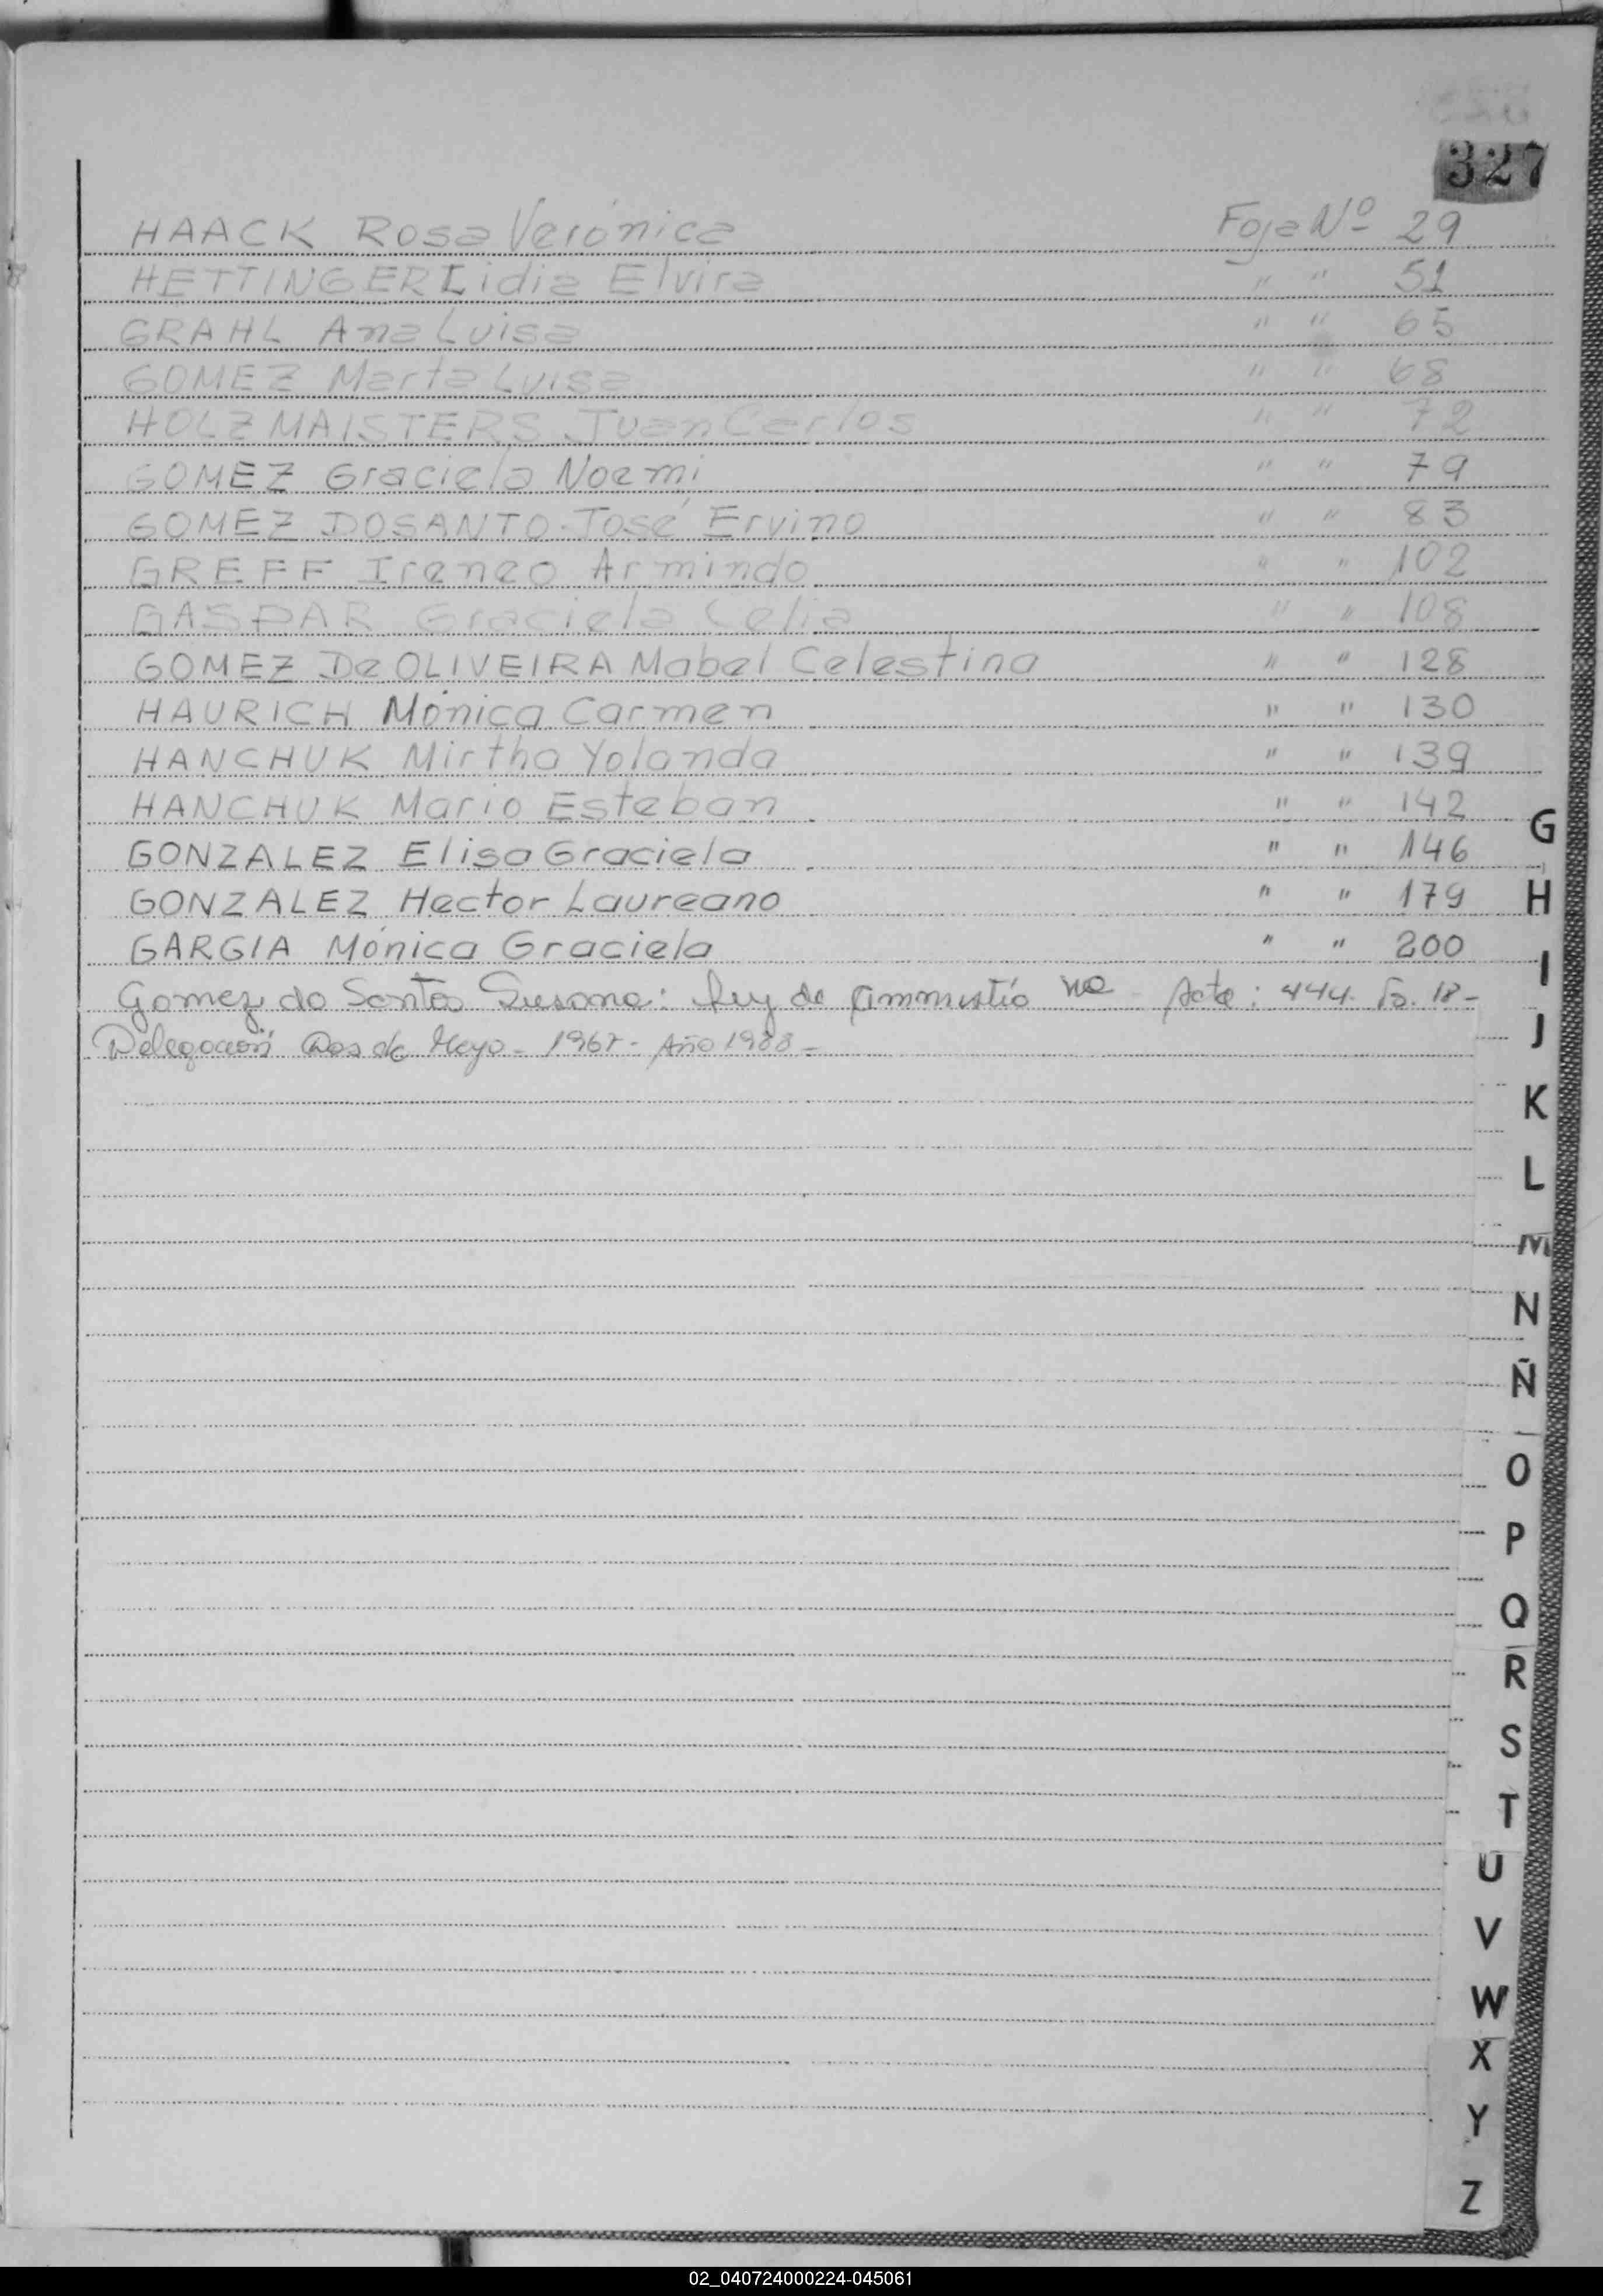 327
HAACK Rosa Verónica Foja Nº 29
HETTINGER Lidia Elvira " " 51
GRAHL Ana Luisa " " 65
GOMEZ Marta Luisa " " 68
HOLZMAISTERS Juan Carlos " " 72
GOMEZ Graciela Noemi " " 79
GOMEZ DOSANTO-José Ervino " " 83
GREFF Ireneo Armindo " " 102
GASPAR Graciela Celia " " 108
GOMEZ De OLIVEIRA Mabel Celestina " " 128
HAURICH Mónica Carmen " " 130
HANCHUK Mirtha Yolanda " " 139
HANCHUK Mario Esteban " " 142
GONZALEZ Elisa Graciela " " 146
GONZALEZ Hector Laureano " " 179
GARGIA Mónica Graciela " " 200
Gomez do Santos Susana: Ley de Ammistía Acta: 444. Fo. 18-
Delegación Dos de Mayo - 1967 - Año 1988 -
G
H
I
J
K
L
M
N
Ñ
O
P
Q
R
S
T
U
V
W
X
Y
Z
02_040724000224-045061